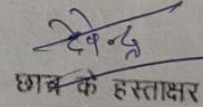 देवेन्द्र
छात्र के हस्ताक्षर